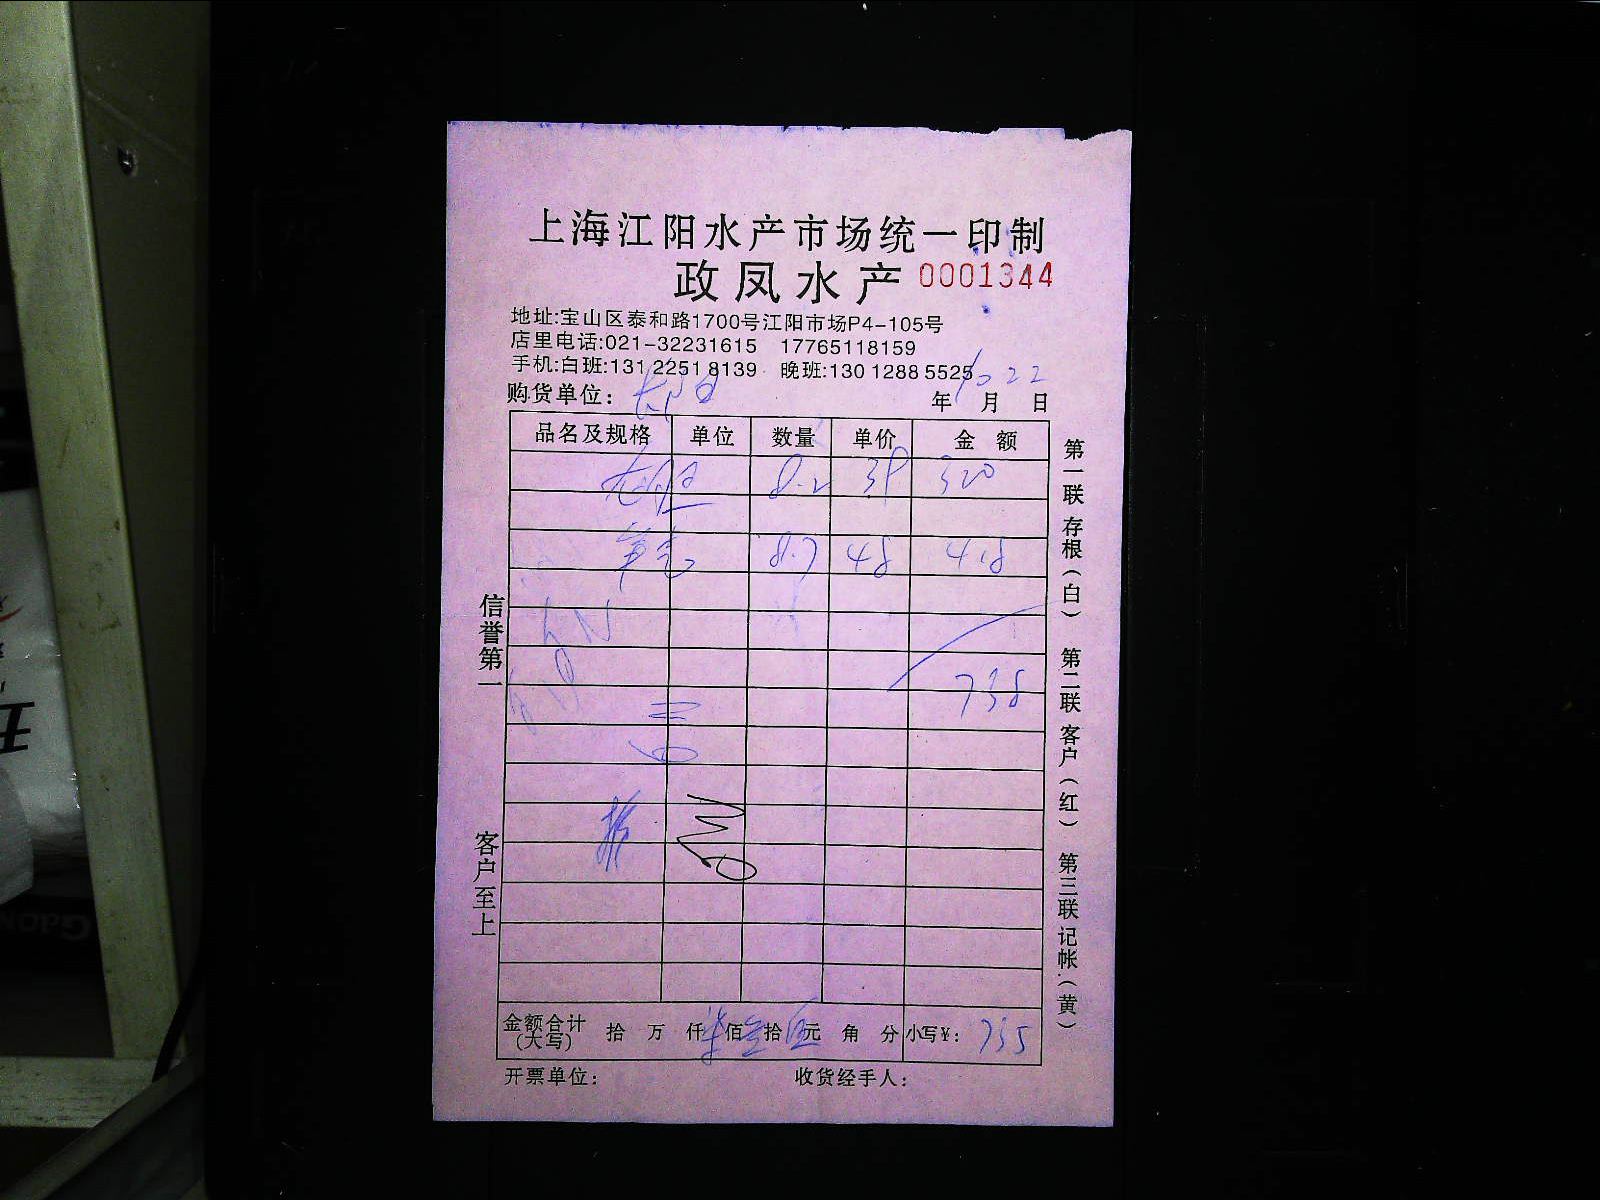 上海江阳水产市场统一印制
政凤水产 0001344
地址:宝山区泰和路1700号江阳市场P4-105号
店里电话:021-32231615 17765118159
手机:白班:131 2251 8139 晚班:130 1288 5525
购货单位: 年 10 月 22 日
品名及规格 单位 数量 单价 金 额
8.2 39 320
8.7 48 418
738
信誉第一
客户至上
第一联 存根(白) 第二联 客户(红) 第三联 记帐.(黄)
金额合计(大写) 拾 万 仟 柒佰 叁拾 伍元 角 分 小写¥: 735
开票单位: 收货经手人: